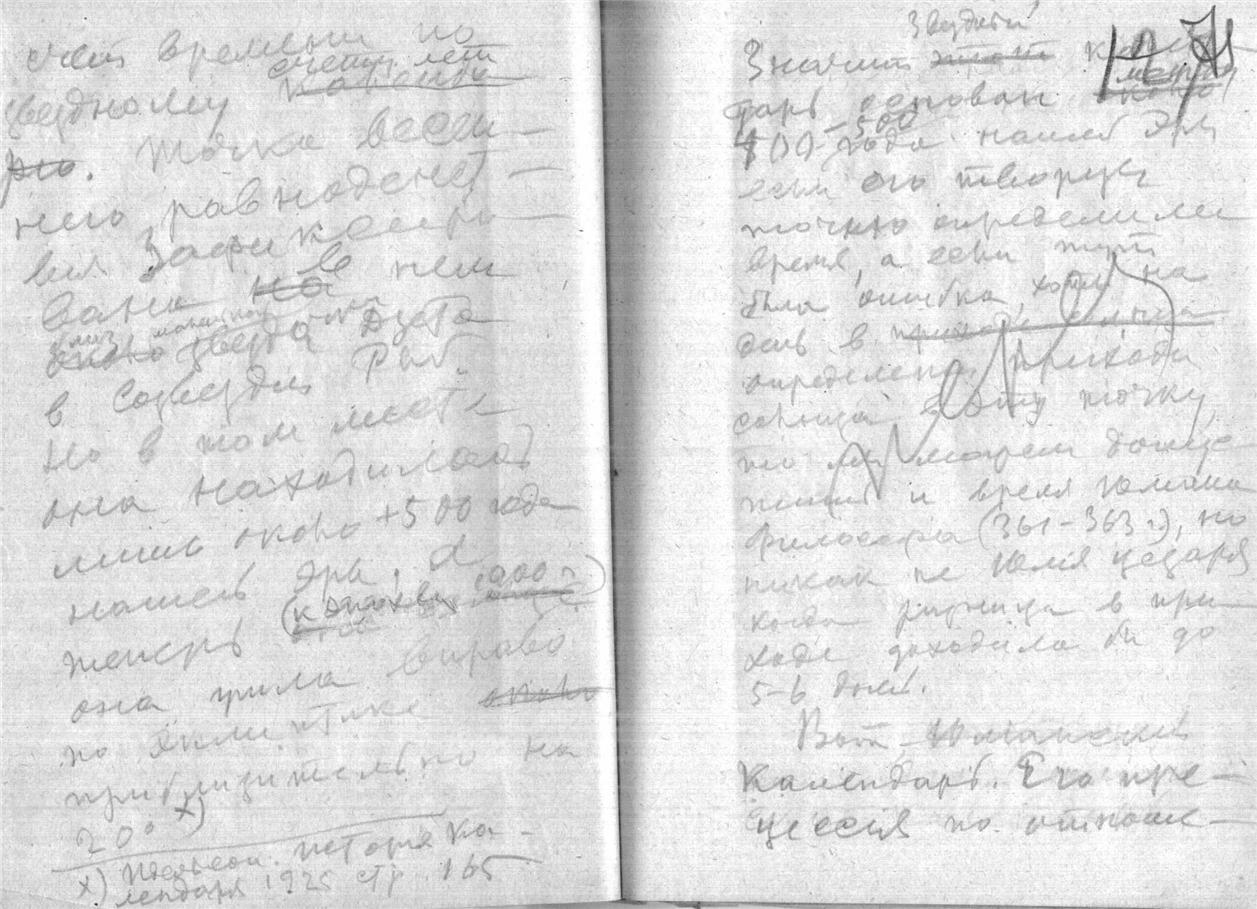 счет времени по
счету лет
звездному
Точка весен-
него равноденст-
вия Зафиксиро-
вана на в нем
близ звезды Дзета
в Созвездии Рыб.
Но в том месте
она находилась
лишь около +500 года
нашей эры. А
теперь (к эпохе 1900 г.)
она ушла вправо
по эклиптике около
приблизительно на
20° x)
x) Идельсон. История ка-
лендаря 1925 стр. 165
Звездный
Значит этот кален-
дарь основан около
400-500 года нашей эры
если его творцы
точно определили
время, а если тут
была ошибка, хотя на
день в
определении прихода
солнца в эту точку,
то мы можем допус-
тить и время Юлиана
философа (361-363 г.), но
никак не Юлия Цезаря
когда разница в при-
ходе доходила бы до
5-6 дней.
Вот Юлианский
Календарь. Его пре-
цессия по отноше-